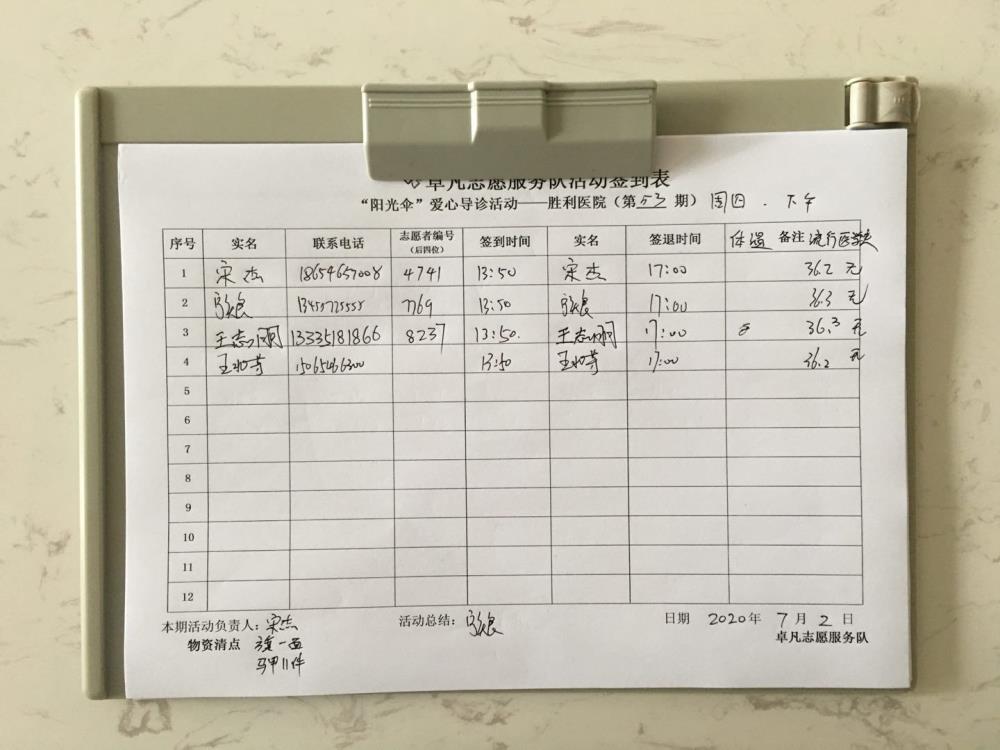 卓凡志愿服务队活动签到表
“阳光伞”爱心导诊活动——胜利医院（第 53 期） 周四 . 下午
序号 实名 联系电话 志愿者编号（后四位） 签到时间 实名 签退时间 体温 备注 流行医学史
1 宋杰 18654657008 4741 13:50 宋杰 17:00 36.2 无
2 7769 13:50 17:00 36.3 无
3 王志 13335181866 8237 13:50. 王志 17:00 36.3 无
4 13:50 17:00 36.2 无
5
6
7
8
9
10
11
12
本期活动负责人：宋杰 活动总结： 日期 2020年 7月 2日
物资清点 一面 卓凡志愿服务队
马甲11件